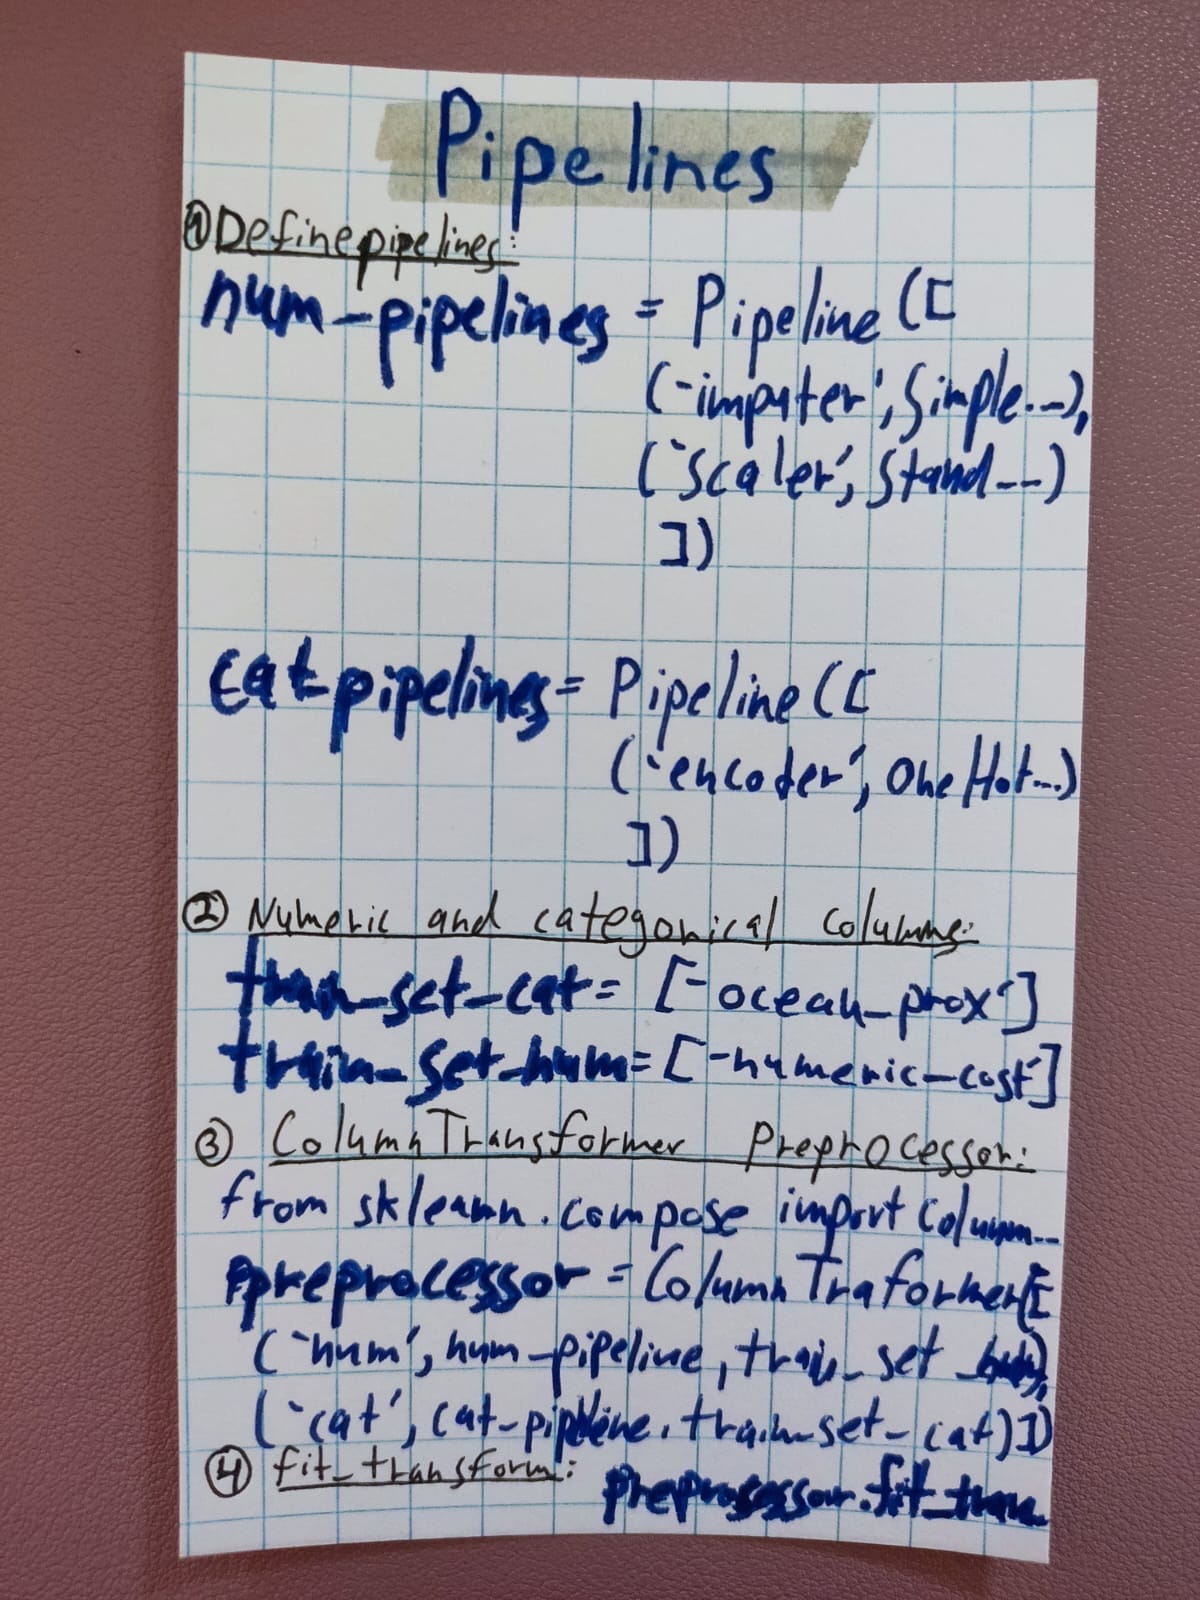 Pipelines
① Define pipelines:
num_pipelines = Pipeline([
('imputer', Simple...),
('scaler', Stand...)
])
cat_pipelines = Pipeline([
('encoder', OneHot...)
])
② Numeric and categorical columns:
train_set_cat = ['ocean_prox']
train_set_num = ['numeric-cost']
③ ColumnTransformer Preprocessor:
from sklearn.compose import Column...
preprocessor = ColumnTraformer([
('num', num_pipeline, train_set_num),
('cat', cat_pipeline, train_set_cat)])
④ fit_transform:
preprosessor.fit_tran